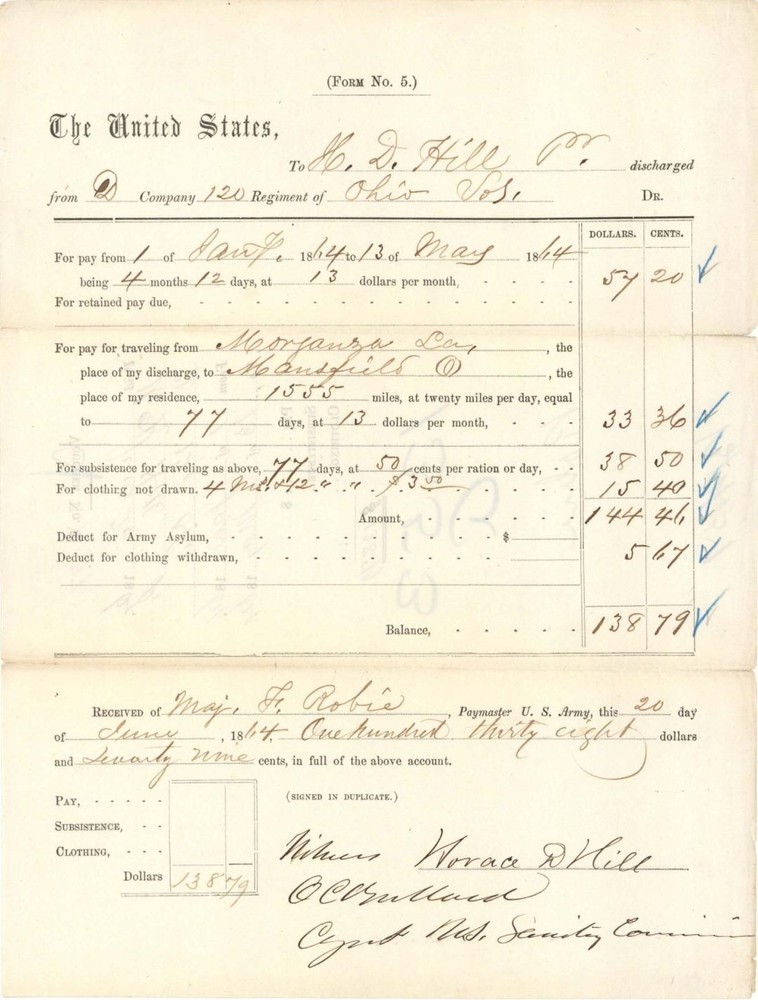 (Form No. 5.)
The United States,
To H. D. Hill Pr. discharged
from D Company 120 Regiment of Ohio Vols. Dr.
DOLLARS. CENTS.
For pay from 1 of Jany. 1864 to 13 of May 1864
being 4 months 12 days, at 13 dollars per month, 57 20
For retained pay due,
For pay for traveling from Morganza La, , the
place of my discharge, to Mansfield O , the
place of my residence, 1555 miles, at twenty miles per day, equal
to 77 days, at 13 dollars per month, 33 36
For subsistence for traveling as above, 77 days, at 50 cents per ration or day, 38 50
For clothing not drawn. 4 Ms. & 12 " " $3 50 15 40
Amount, 144 46
Deduct for Army Asylum, $
Deduct for clothing withdrawn, 5 67
Balance, 138 79
Received of Maj. F. Robie , Paymaster U. S. Army, this 20 day
of June , 1864. One hundred thirty eight dollars
and Seventy nine cents, in full of the above account.
(SIGNED IN DUPLICATE.)
Pay,
Subsistence,
Clothing,
Dollars 138 79
Witness Horace D Hill
Agent U.S. Sanitary